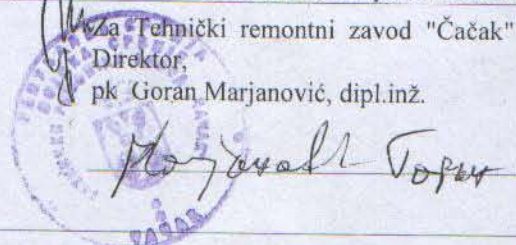 Za Tehnički remontni zavod "Čačak"
Direktor,
pk Goran Marjanović, dipl.inž.
ЧАЧАК